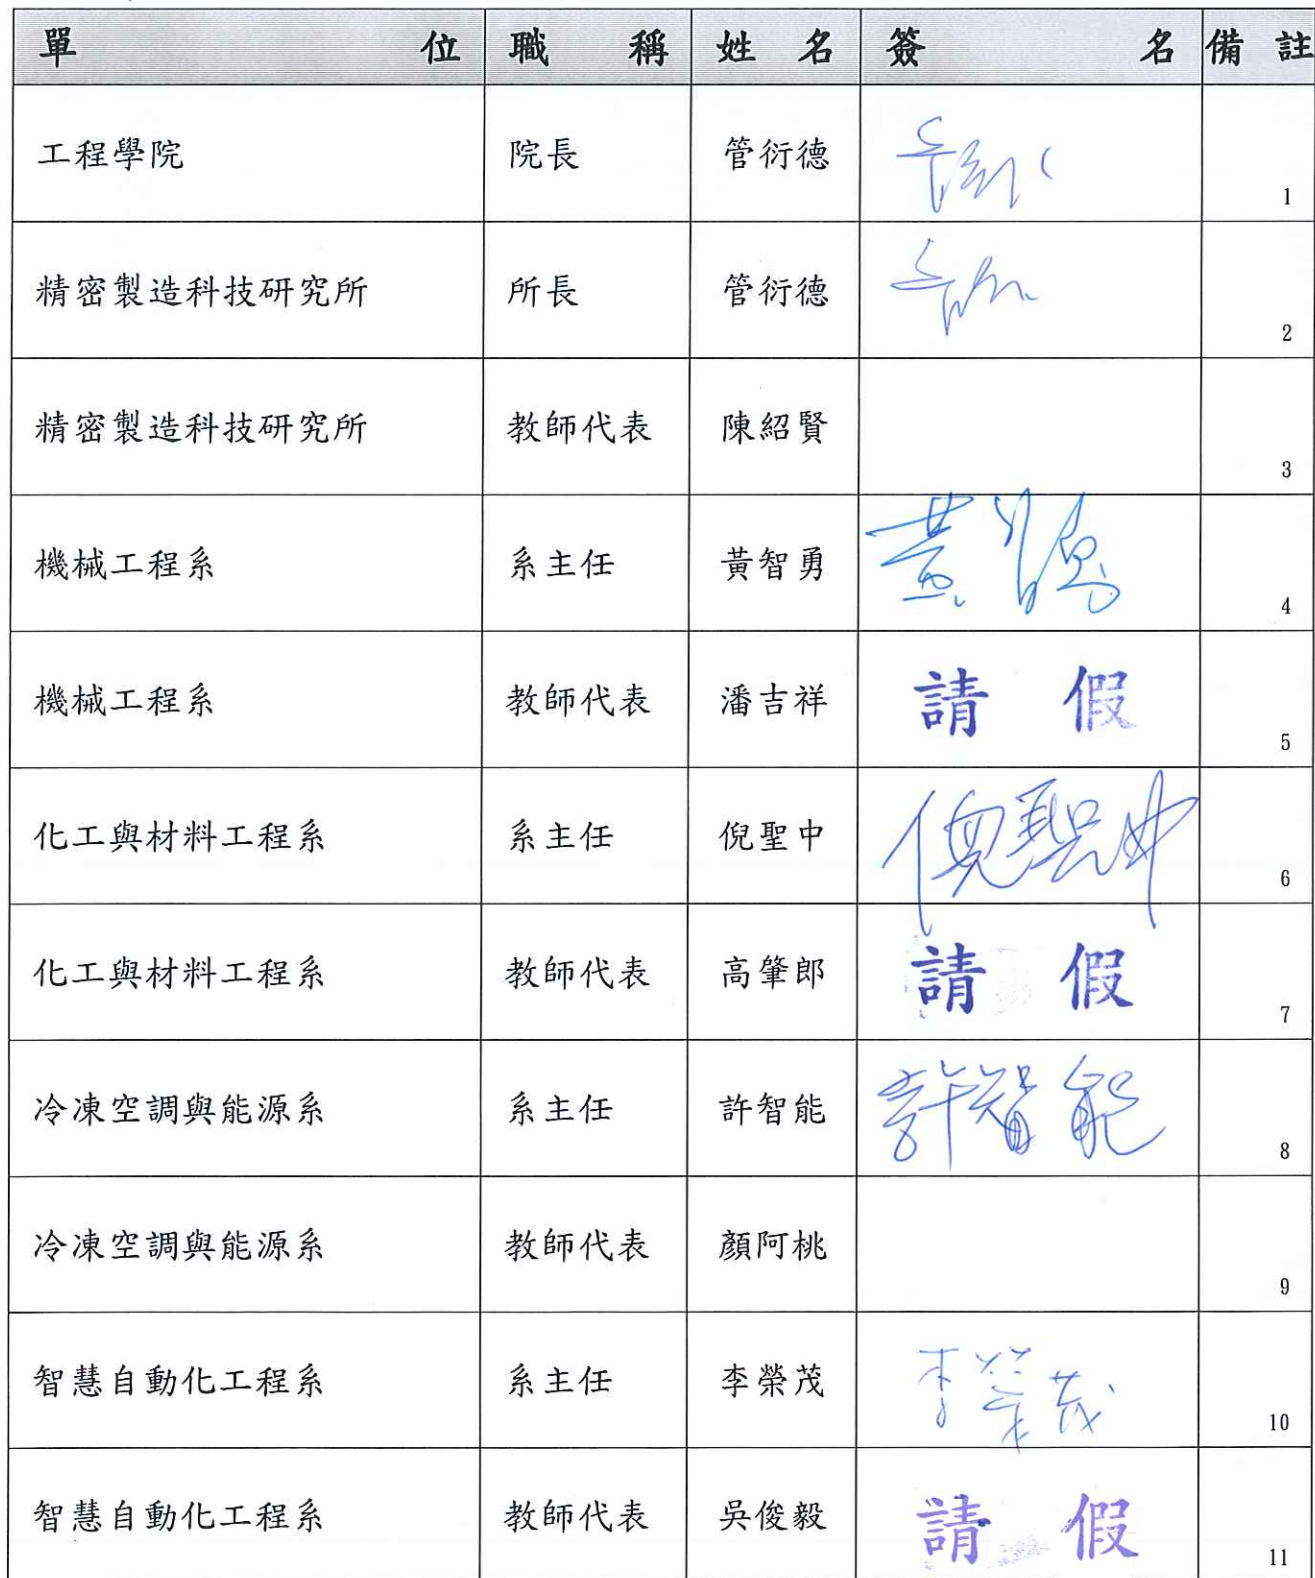 單位 職稱 姓名 簽名 備註
工程學院 院長 管衍德 1
精密製造科技研究所 所長 管衍德 2
精密製造科技研究所 教師代表 陳紹賢 3
機械工程系 系主任 黃智勇 黃智勇 4
機械工程系 教師代表 潘吉祥 請假 5
化工與材料工程系 系主任 倪聖中 倪聖中 6
化工與材料工程系 教師代表 高肇郎 請假 7
冷凍空調與能源系 系主任 許智能 許智能 8
冷凍空調與能源系 教師代表 顏阿桃 9
智慧自動化工程系 系主任 李榮茂 李榮茂 10
智慧自動化工程系 教師代表 吳俊毅 請假 11